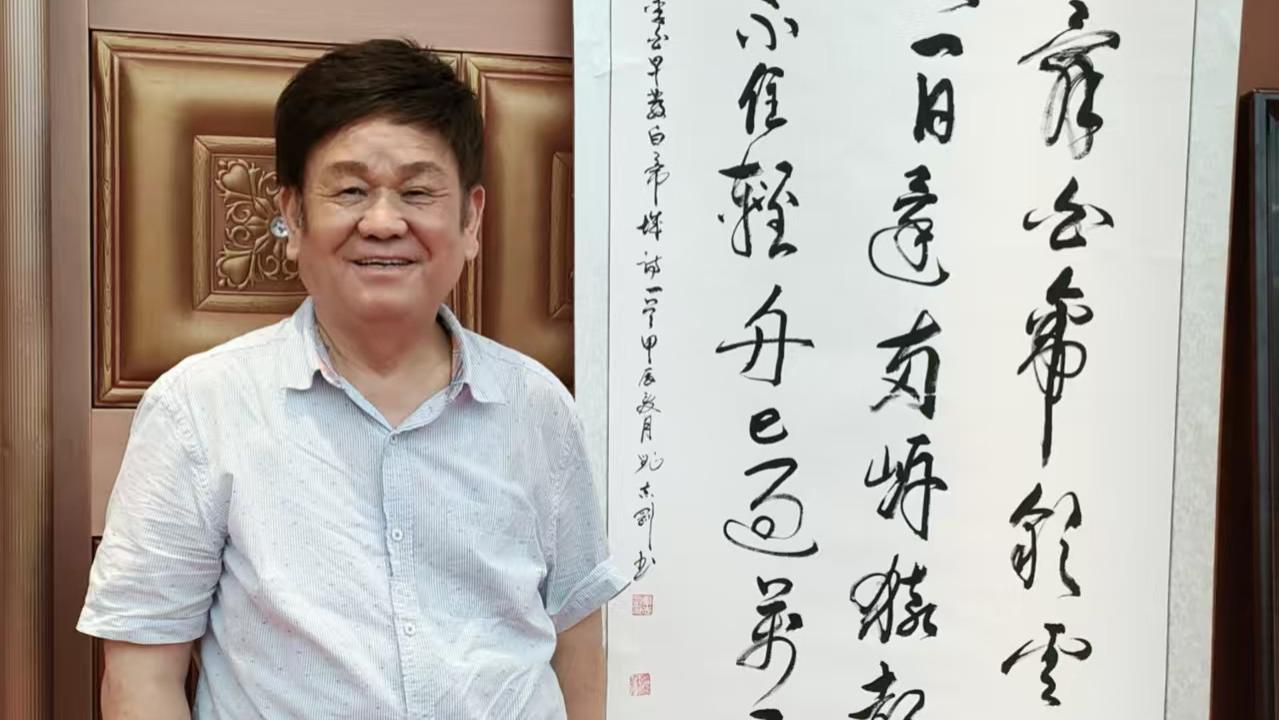 辭白帝彩雲
一日還兩岸猿
不住輕舟已過萬
白早發白帝城詩一首甲辰夏月書